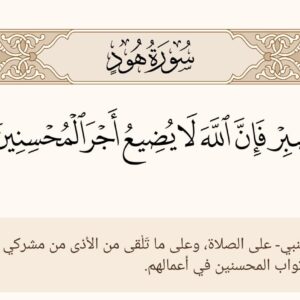 سُورَةُ هُودٍ
فَإِنَّ ٱللَّهَ لَا يُضِيعُ أَجْرَ ٱلْمُحْسِنِينَ
على الصلاة، وعلى ما تَلْقى من الأذى من مشركي
ثواب المحسنين في أعمالهم.